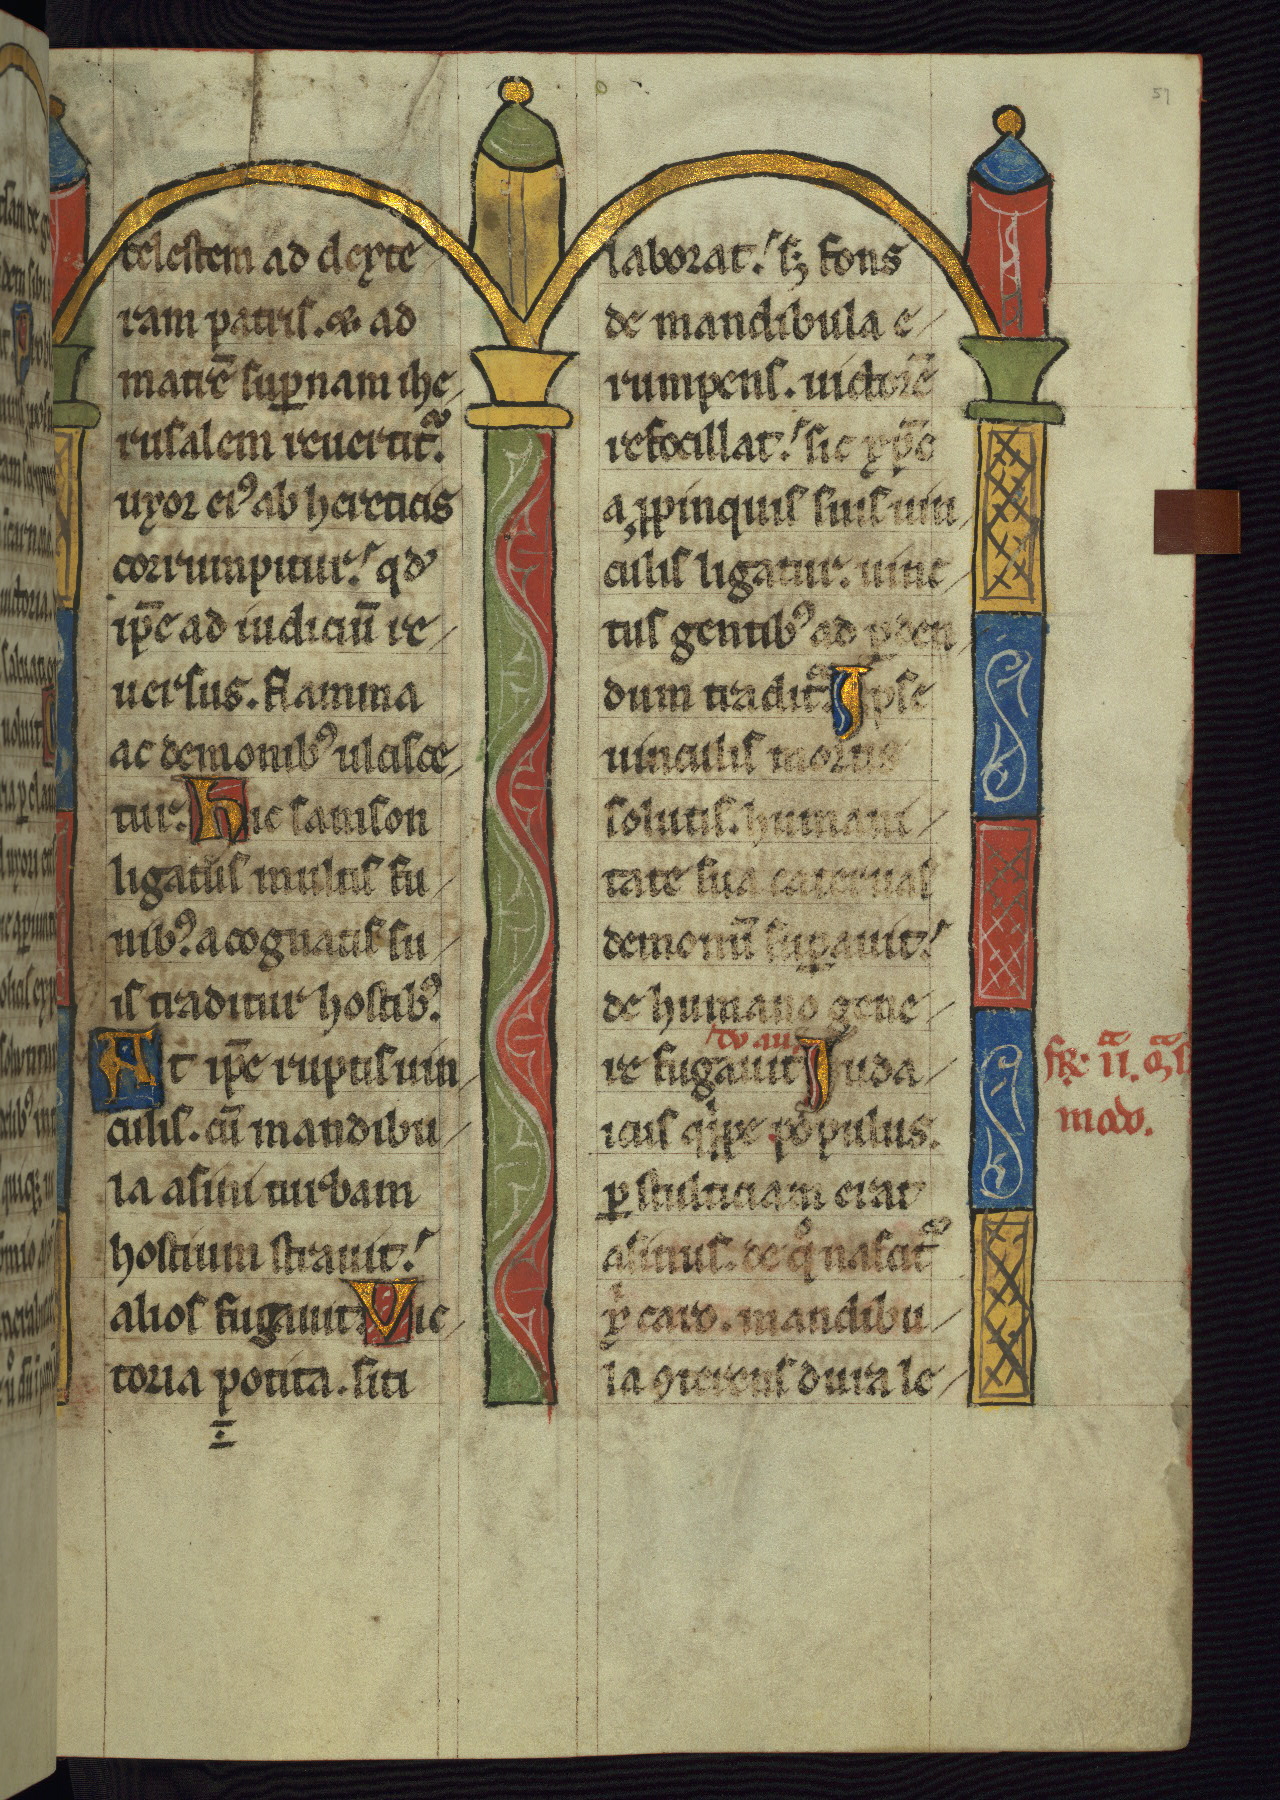 celestem ad dexte
ram patris. & ad
matrē suꝑnam ihe
rusalem reuertit᷑.
uxor eiꝰ ab hereticis
corrumpitur. qd'
ip̄e ad iudiciū re
uersus. flamma
ac demonibꝰ ulcisce
tur. Hic samson
ligatus multis fu
nibꝰ. a cognatis su
is traditur hostibꝰ.
At ip̄e ruptis uin
culis. cū mandibu
la asini turbam
hostium strauit.
alios fugauit. Vic
toria potita. siti
laborat. sꝫ fons
de mandibula e
rumpens. uictorē
refocillat. sic xp̄c
a ꝓpinquis suis uin
culis ligatur. uinc
tus gentibꝰ ad ꝑden
dum tradit᷑. Ipse
uinculis mortis
solutis. humani
tate sua cateruas
demonū suꝑauit.
de humano gene
tu au.
re fugauit. Iuda
icus qͥppe populus.
ꝑ stulticiam erat
asinus. de qͦ nascit᷑
xͥ caro. mandibu
la ꝯterens dura le
fr̄. ii. qͣ
modo.
51